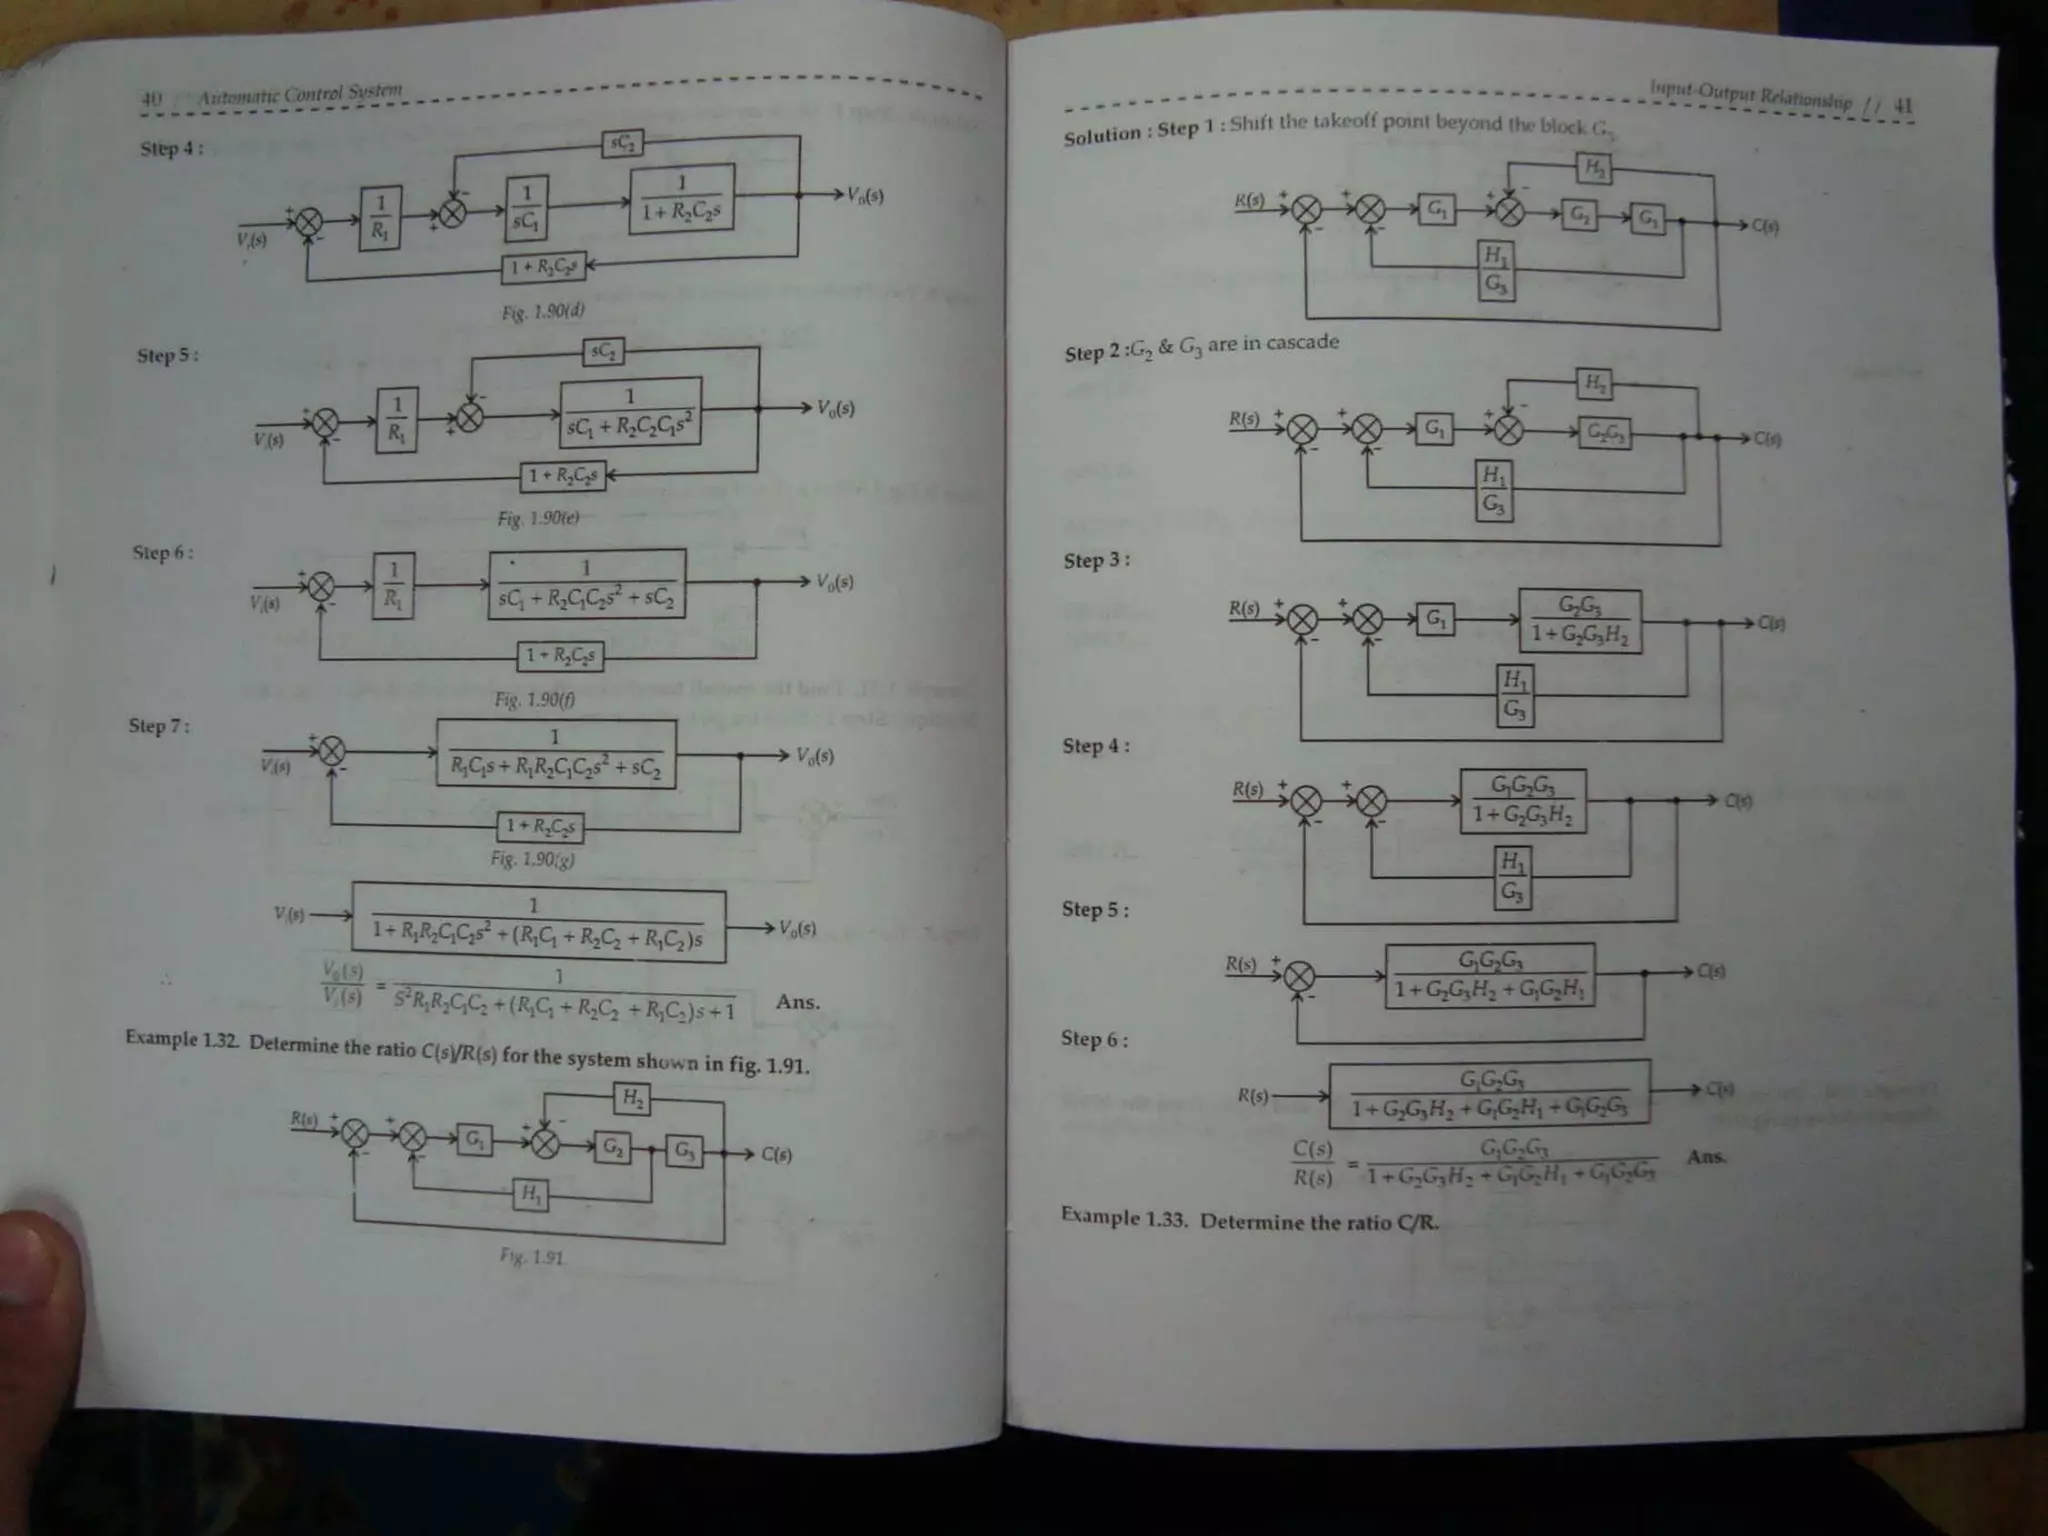 40 Automatic Control System
Step 4 :
sC₂
V_i(s) + - 1/R₁ + - 1/sC₁ 1/(1 + R₂C₂s) V₀(s)
1 + R₂C₂s
Fig. 1.90(d)
Step 5 :
sC₂
V_i(s) + - 1/R₁ + - 1/(sC₁ + R₂C₂C₁s²) V₀(s)
1 + R₂C₂s
Fig. 1.90(e)
Step 6 :
V_i(s) + - 1/R₁ 1/(sC₁ + R₂C₁C₂s² + sC₂) V₀(s)
1 + R₂C₂s
Fig. 1.90(f)
Step 7 :
V_i(s) + - 1/(R₁C₁s + R₁R₂C₁C₂s² + sC₂) V₀(s)
1 + R₂C₂s
Fig. 1.90(g)
V_i(s) 1/(1 + R₁R₂C₁C₂s² + (R₁C₁ + R₂C₂ + R₁C₂)s) V₀(s)
∴ V₀(s)/V_i(s) = 1/(S²R₁R₂C₁C₂ + (R₁C₁ + R₂C₂ + R₁C₂)s + 1) Ans.
Example 1.32. Determine the ratio C(s)/R(s) for the system shown in fig. 1.91.
H₂
R(s) + - + - G₁ + - G₂ G₃ C(s)
H₁
Fig. 1.91
Input-Output Relationship // 41
Solution : Step 1 : Shift the takeoff point beyond the block G₃
H₂
R(s) + - + - G₁ + - G₂ G₃ C(s)
H₁/G₃
Step 2 :G₂ & G₃ are in cascade
H₂
R(s) + - + - G₁ + - G₂G₃ C(s)
H₁/G₃
Step 3 :
R(s) + - + - G₁ G₂G₃/(1 + G₂G₃H₂) C(s)
H₁/G₃
Step 4 :
R(s) + - + - G₁G₂G₃/(1 + G₂G₃H₂) C(s)
H₁/G₃
Step 5 :
R(s) + - G₁G₂G₃/(1 + G₂G₃H₂ + G₁G₂H₁) C(s)
Step 6 :
R(s) G₁G₂G₃/(1 + G₂G₃H₂ + G₁G₂H₁ + G₁G₂G₃) C(s)
C(s)/R(s) = G₁G₂G₃/(1 + G₂G₃H₂ + G₁G₂H₁ + G₁G₂G₃) Ans.
Example 1.33. Determine the ratio C/R.